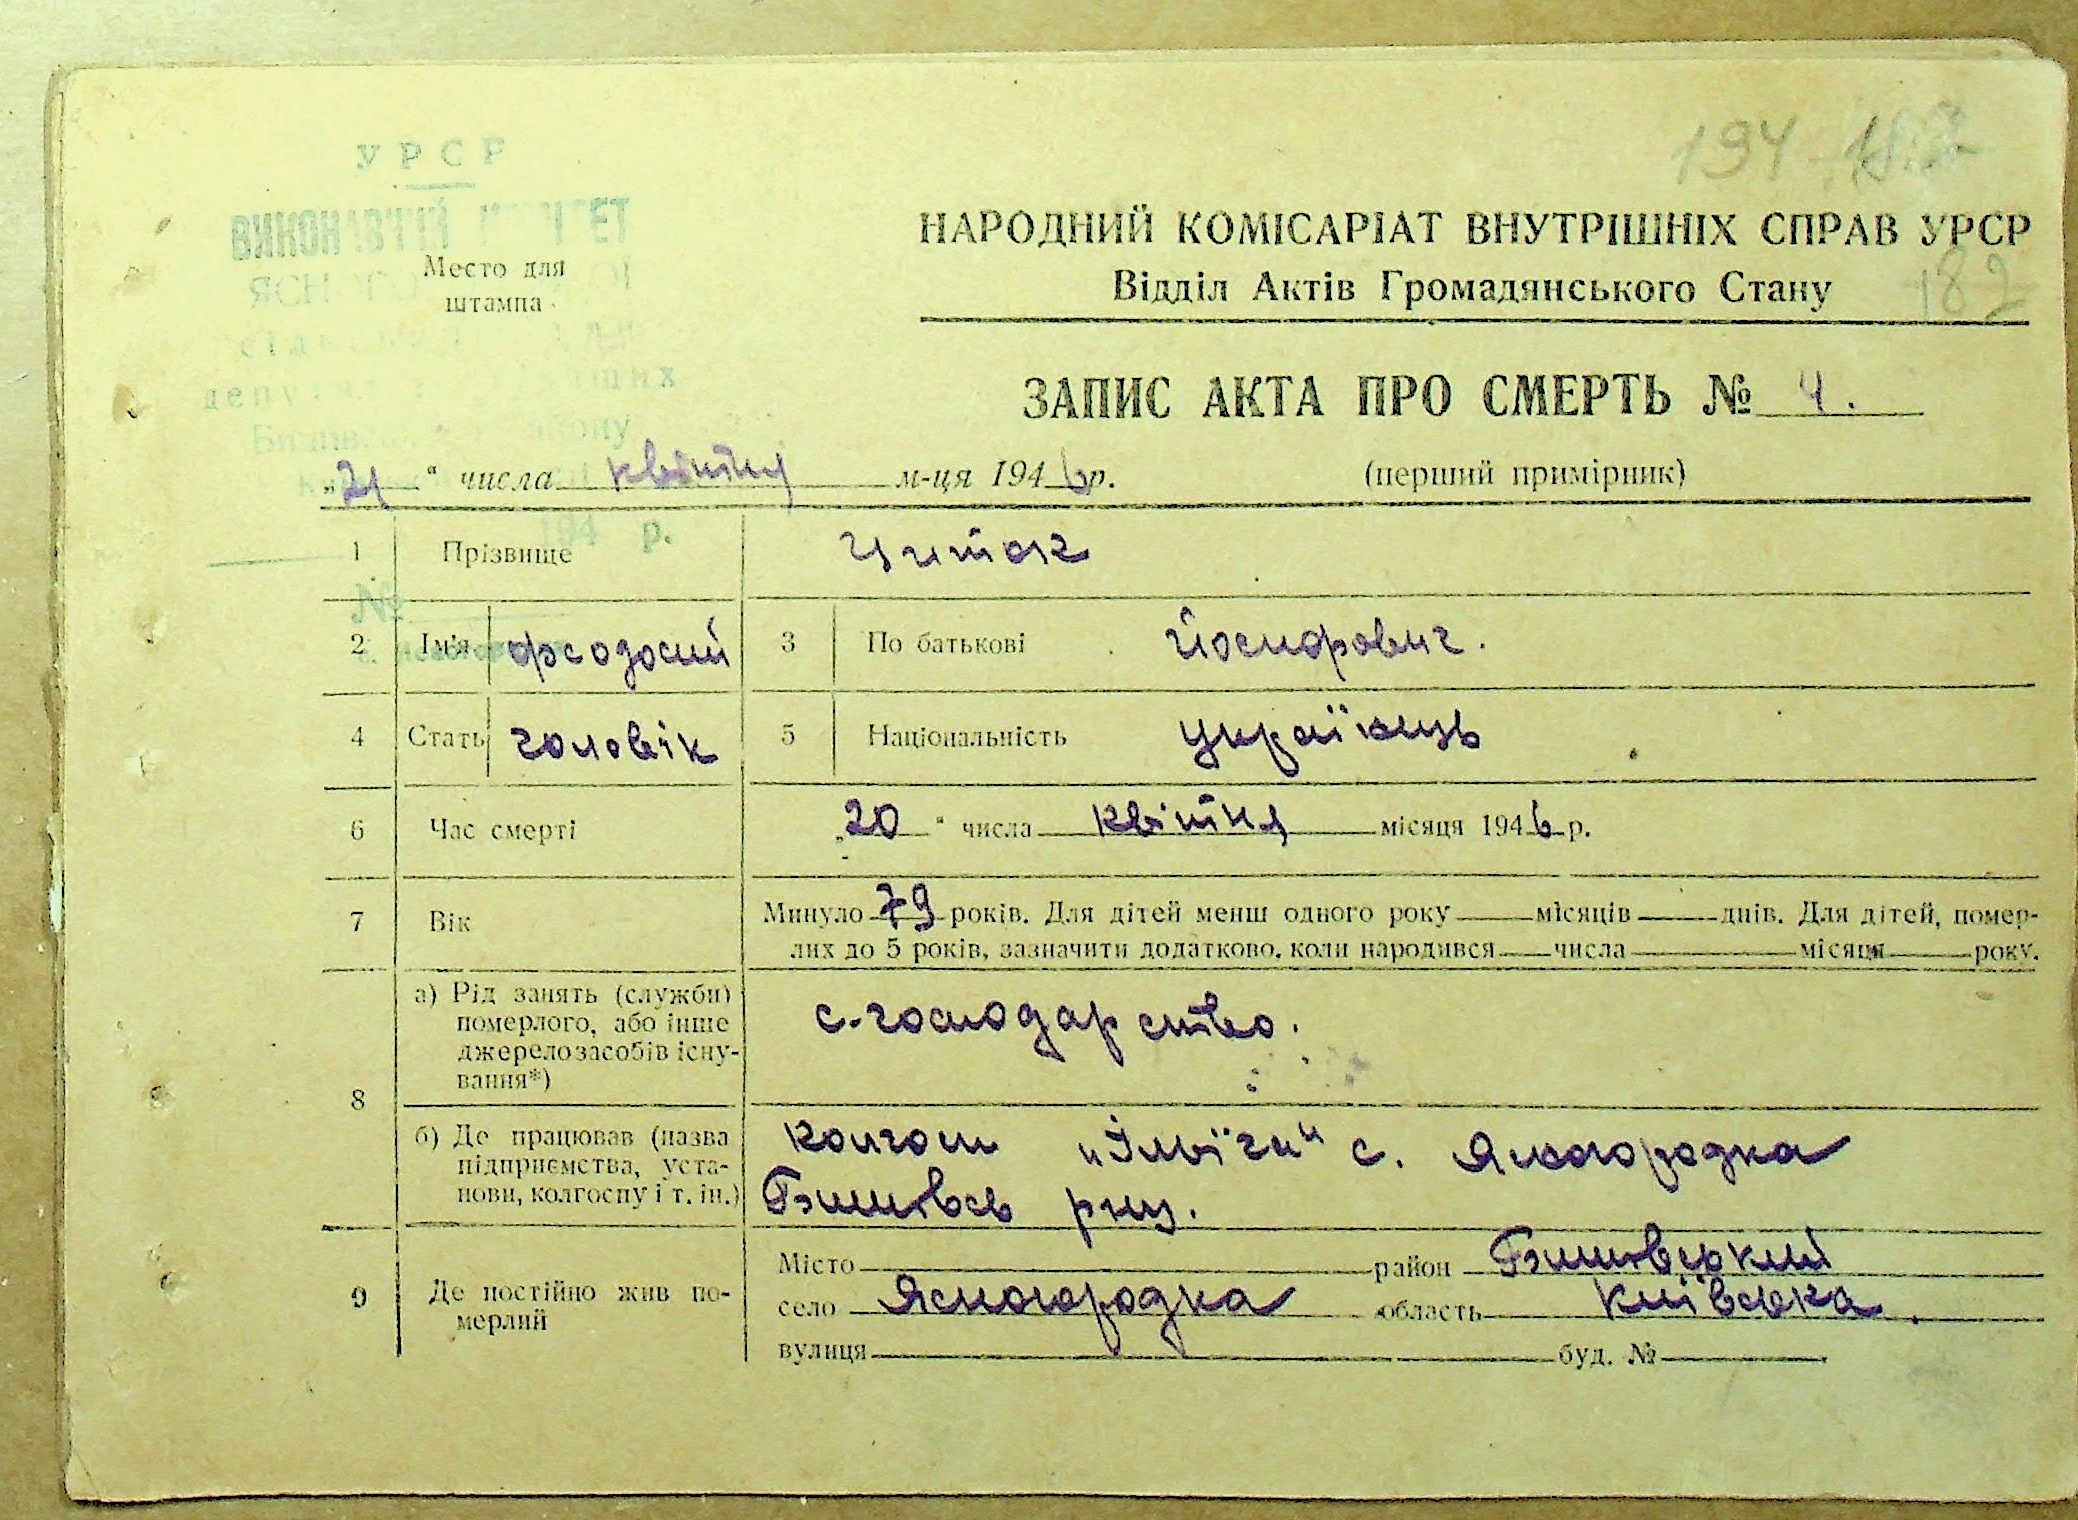 194
УРСР
ВИКОНАВЧИЙ КОМІТЕТ
НАРОДНИЙ КОМІСАРІАТ ВНУТРІШНІХ СПРАВ УРСР
Место для
штампа
Відділ Актів Громадянського Стану
182
ЗАПИС АКТА ПРО СМЕРТЬ № 4.
„21“ числа квітня м-ця 1946 р. (перший примірник)
194 р.
№
1 Прізвище Циток
2 Ім'я феодосий 3 По батькові Йосифович.
4 Стать чоловік 5 Національність українець
6 Час смерті „20“ числа квітня місяця 1946 р.
7 Вік Минуло 79 років. Для дітей менш одного року місяців днів. Для дітей, помер-
лих до 5 років, зазначити додатково, коли народився числа місяця року.
8 а) Рід занять (служби) померлого, або інше джерело засобів існу-вання*) с.-господарство.
б) Де працював (назва підприємства, уста-нови, колгоспу і т. ін.) колгосп „Ілліча" с. Ясногородка
9 Де постійно жив по-мерлий
Місто район
село Ясногородка область Київська.
вулиця буд. №